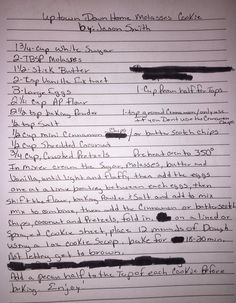 Uptown Down Home Molasses Cookie
by: Jason Smith
1 3/4 cup White Sugar
2 TBSP Molasses
1 1/2 stick Butter
2 tsp Vanilla Extract
3 Large Eggs 1 Cup Pecan half for Tops
2 1/2 cup AP Flour
2 1/2 tsp baking Powder 1 tsp ground Cinnamon/only use
1/2 tsp Salt if you Don't use the Cinnamon Chips
1/2 cup mini Cinnamon Chips/or butter Scotch chips
1/2 cup Shredded Coconut
3/4 cup Crushed Pretzels Preheat oven to 350°
In mixer cream the Sugar, Molasses, butter and
Vanilla, until light and fluffy then add the eggs
one at a time beating between each eggs, then
Sift the flour, baking Powder & Salt and add to mix
mix to combine, then add the Cinnamon or butterscotch
Chips, coconut and Pretzels, fold in. on a lined or
Spray, cookie sheet, place 12 mounds of Dough
using a 1oz cookie Scoop. bake for 18-20 min.
Not letting get to brown.
Add a pecan half to the Top of each Cookie Before
baking. Enjoy!